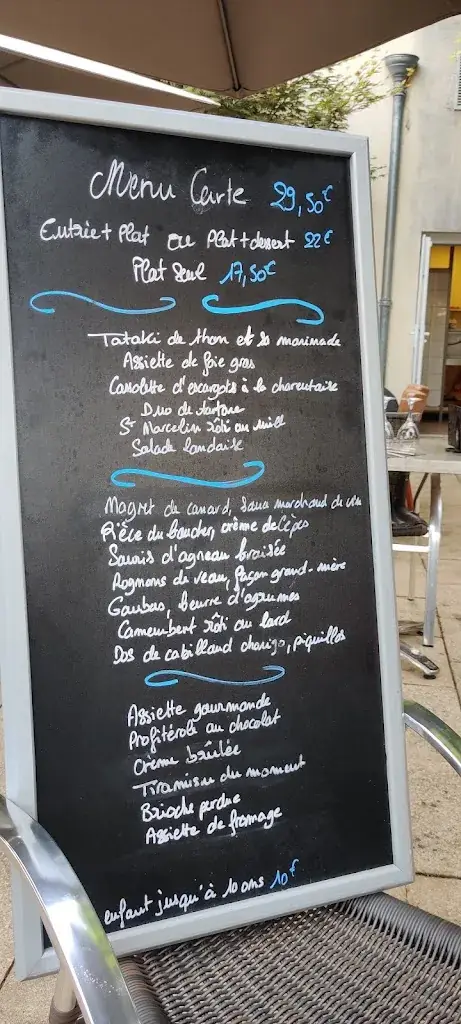 Menu Carte 29,50€
Entrée + Plat ou Plat + dessert 22€
Plat Seul 17,50€
Tataki de thon et sa marinade
Assiette de foie gras
Cassolette d'escargots à la charentaise
Duo de tartare
St Marcelin rôti au miel
Salade landaise
Magret de canard, sauce marchand de vin
Pièce du boucher, crème de Cèpes
Souris d'agneau braisée
Rognons de veau, façon grand-mère
Gambas, beurre d'agrumes
Camembert rôti au lard
Dos de cabillaud chorizo, piquillos
Assiette gourmande
Profiterole au chocolat
Crème brûlée
Tiramisu du moment
Brioche perdue
Assiette de fromage
enfant jusqu'à 10 ans 10€